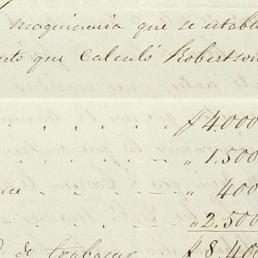 maquinaria que se estable
que calculó Robertson
$ 4.000
" 1.500
400
" 2.500
de trabajar $ 8.400